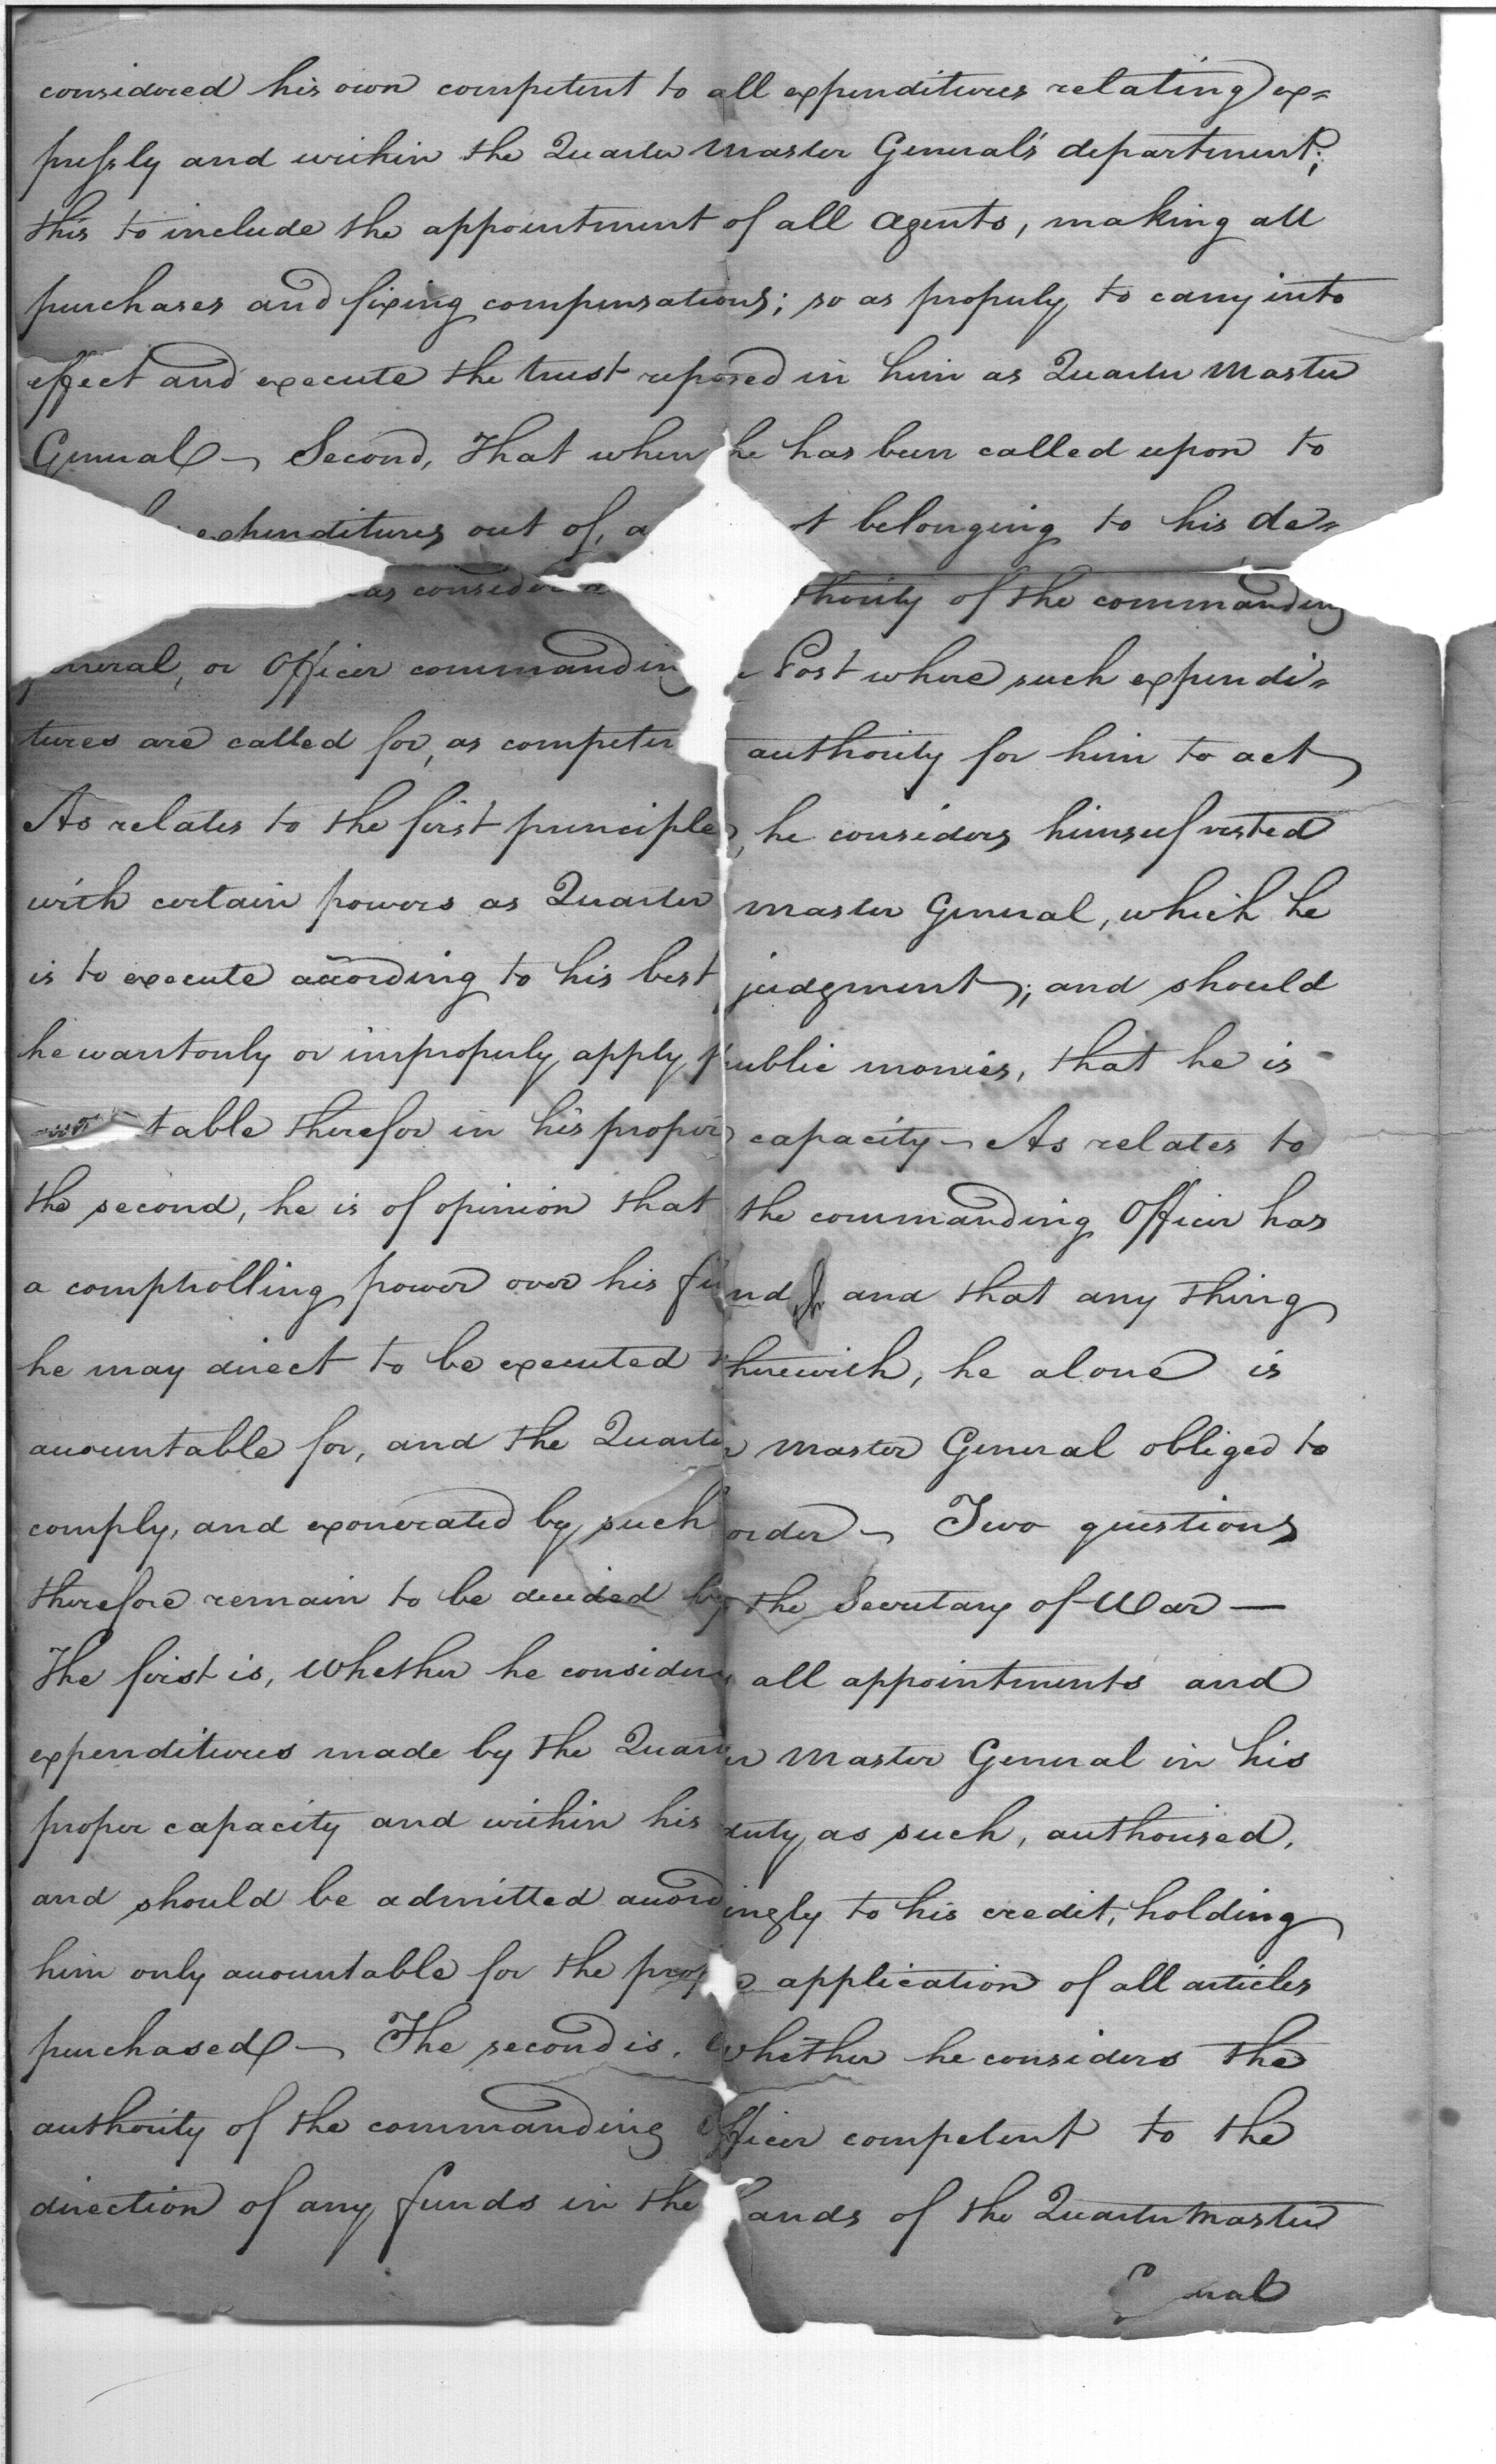 considered his own competent to all expenditures relating ex=
pressly and within the Quarter Master General's department;
this to include the appointment of all agents, making all
purchases and fixing compensations; so as properly to carry into
effect and execute the trust reposed in him as Quarter Master
General — Second, That when he has been called upon to
expenditures out of, a ot belonging to his de=
as consider thority of the commanding
neral, or Officer commanding Post where such expendi=
tures are called for, as competen authority for him to act
As relates to the first principle, he considers himself vested
with certain powers as Quarter Master General, which he
is to execute according to his best judgment; and should
he wantonly or improperly apply public monies, that he is
table therefor in his proper capacity — As relates to
the second, he is of opinion that the commanding Officer has
a comptrolling power over his funds and that any thing
he may direct to be executed therewith, he alone is
accountable for, and the Quarter Master General obliged to
comply, and exonerated by such order — Two questions
therefore remain to be decided by the Secretary of War —
The first is, Whether he considers all appointments and
expenditures made by the Quarter Master General in his
proper capacity and within his duty as such, authorised,
and should be admitted accordingly to his credit, holding
him only accountable for the prop application of all articles
purchased — The second is, Whether he considers the
authority of the commanding Officer competent to the
direction of any funds in the hands of the Quarter Master
neral